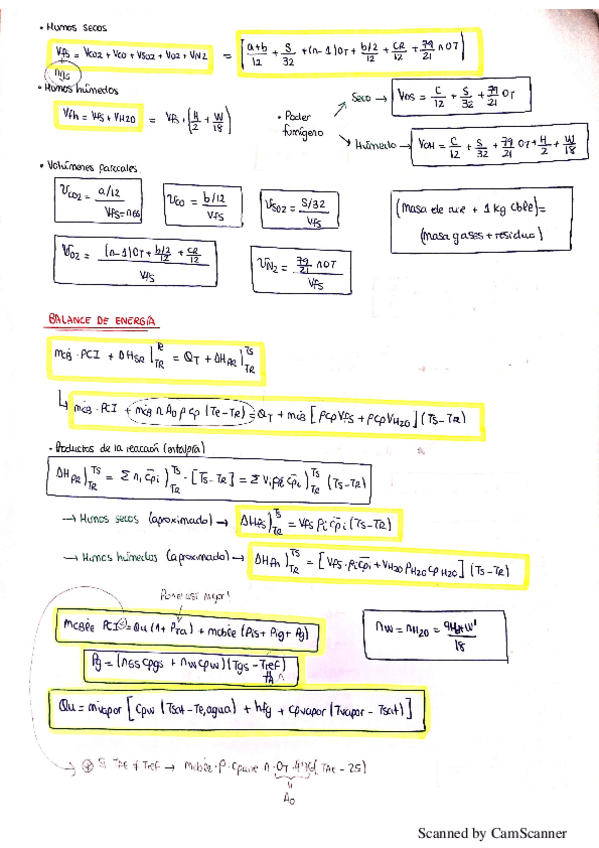 • Humos secos
Vfs = VCO2 + VCO + VSO2 + VO2 + VN2 = [a+b/12 + S/32 + (n-1)OT + b/2/12 + CR/12 + 79/21 nOT]
ngs
• Humos húmedos
Vfh = Vfs + VH2O = Vfs + (H/2 + W/18)
• Poder fumígeno
Seco → VOS = C/12 + S/32 + 79/21 OT
Húmedo → VOH = C/12 + S/32 + 79/21 OT + H/2 + W/18
• Volúmenes parciales
VCO2 = a/12 / Vfs=ngs
VCO = b/12 / Vfs
VSO2 = S/32 / Vfs
(masa de aire + 1 kg cble) =
(masa gases + residuo)
VO2 = (n-1)OT + b/2/12 + CR/12 / Vfs
VN2 = 79/21 nOT / Vfs
BALANCE DE ENERGÍA
mCB · PCI + ΔHSR |TR = QT + ΔHPR |TS TR
↳ mCB · PCI + mCB n A0 ρ Cp (Te - TR) = QT + mCB [ρCpVfs + ρCpVH2O] (TS - TR)
• Productos de la reacción (entalpía)
ΔHPR)TS TR = Σ ni cpi)TS TR · [TS - TR] = Σ Vi ρi cpi)TS TR (TS - TR)
→ Humos secos (aproximado) → ΔHfs)TS TR = Vfs ρi cpi (TS - TR)
→ Humos húmedos (aproximado) → ΔHfh)TS TR = [Vfs · ρi cpi + VH2O ρH2O cpH2O] (TS - TR)
Poner así mejor!
mcble PCI = Qu (1 + Pra) + mcble (Pis + Pig + Pg)
nW = nH2O = 9H+W'/18
Pg = (nGS cpgs + nW cpw) (Tgs - Tref)
Qu = mvapor [cpw (Tsat - Te,agua) + hfg + cpvapor (Tvapor - Tsat)]
→ Si TAE ≠ Tref → mcble · ρ · cpaire n · OT · 4'76 (TAE - 25)
A0
Scanned by CamScanner